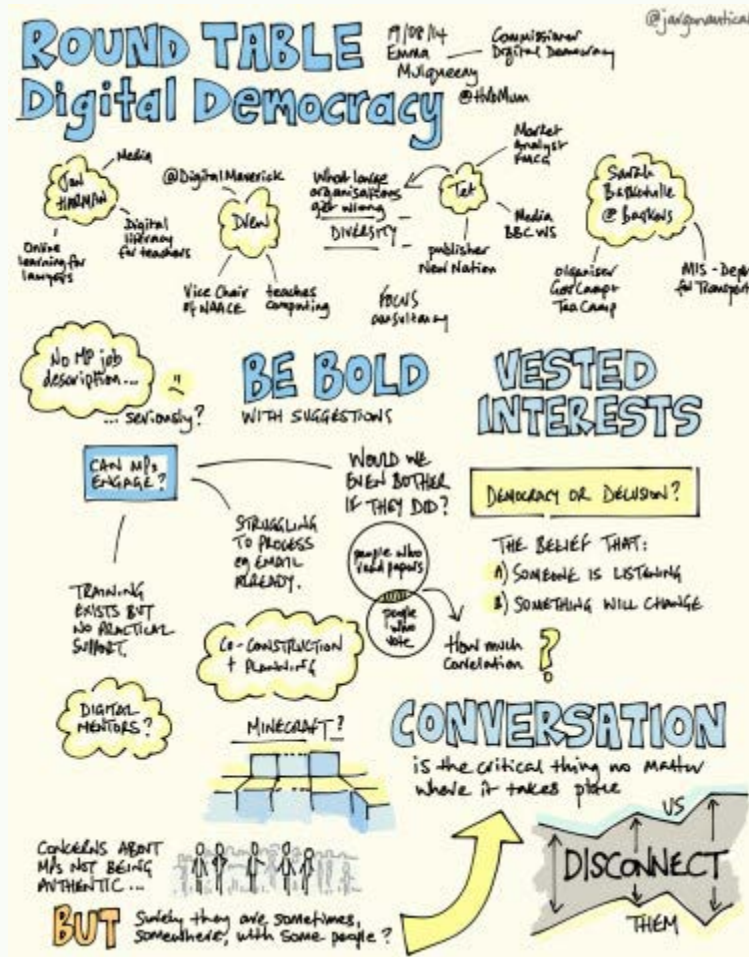 @jargonautical
ROUND TABLE
Digital Democracy
19/08/14
Emma
Mulqueeny
Commissioner
Digital Democracy
@HubMum
Jon
HARMAN
Media
Online
learning for
lawyers
Digital
literacy
for teachers
@DigitalMaverick
Drew
Vice Chair
of NAACE
teaches
computing
What large
organisations
get wrong
DIVERSITY
Tet
Market
Analyst
FMCG
Media
BBC WS
publisher
New Nation
FOCUS
consultancy
Sarah
@ Baskers
organiser
GovCamp +
TeaCamp
MIS - Dept
for Transport
No MP job
description...
... seriously?
BE BOLD
WITH SUGGESTIONS
VESTED
INTERESTS
CAN MPs
ENGAGE?
WOULD WE
EVEN BOTHER
IF THEY DID?
STRUGGLING
TO PROCESS
eg EMAIL
ALREADY.
TRAINING
EXISTS BUT
NO PRACTICAL
SUPPORT.
DIGITAL
MENTORS?
people who
read papers
people
who
vote
How much
correlation
?
DEMOCRACY OR DELUSION?
THE BELIEF THAT:
A) SOMEONE IS LISTENING
B) SOMETHING WILL CHANGE
CO-CONSTRUCTION
+ PLANNING
MINECRAFT?
CONVERSATION
is the critical thing no matter
where it takes place
US
DISCONNECT
THEM
CONCERNS ABOUT
MPs NOT BEING
AUTHENTIC...
BUT
Surely they are sometimes,
somewhere, with some people?